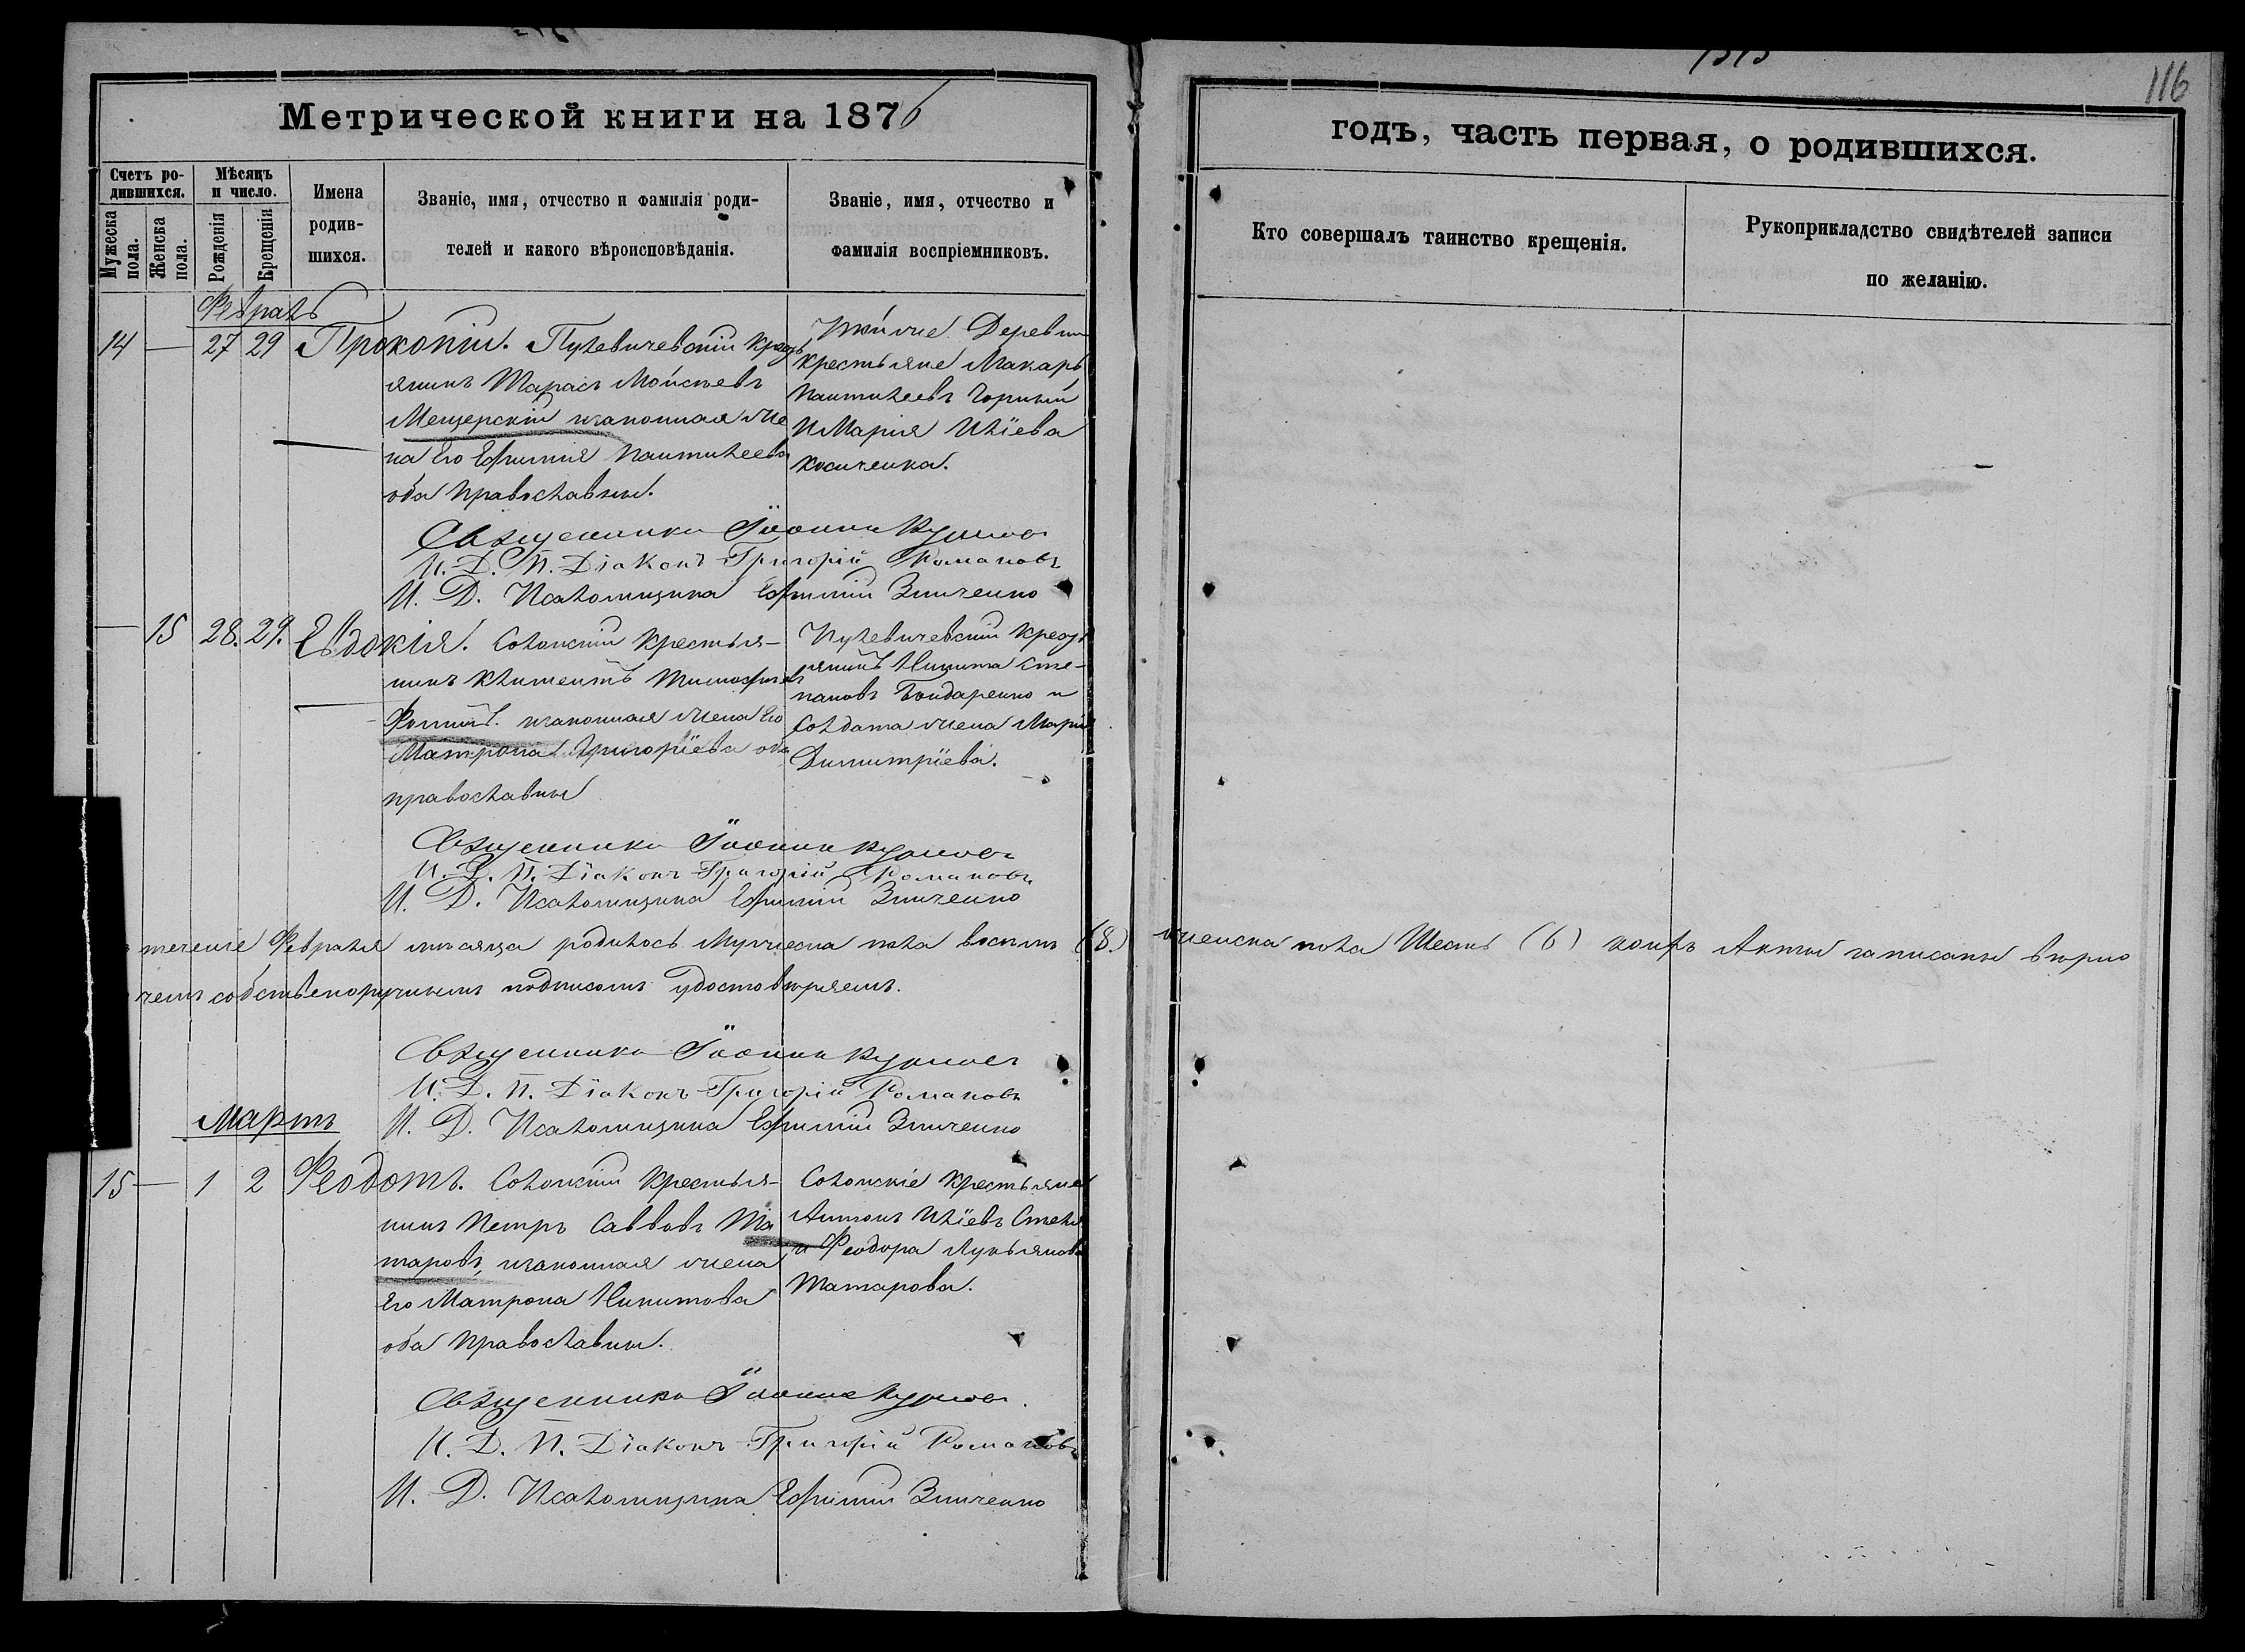 116
Метрической книги на 1876
годъ, часть первая, о родившихся.
Счетъ ро-
дившихся.
Мужеска
пола.
Женска
пола.
Мѣсяцъ
и число.
Рожденія
Крещенія
Имена
родив-
шихся.
Званіе, имя, отчество и фамилія роди-
телей и какого вѣроисповѣданія.
Званіе, имя, отчество и
фамилія воспріемниковъ.
Кто совершалъ таинство крещенія.
Рукоприкладство свидѣтелей записи
по желанію.
Февраль
14 — 27 29 Прокопій.
янинъ Тарасъ Мойсеевъ
Мещерскій изаконная же
на Его Ефимія Пантилеева
оба Православные.
Деревни
крестьяне Макаръ
Пантилеевъ Чорный
И Марія Иліева
Косиченка.
Священникъ Іоаннъ
И. Д. П. Діаконъ Григорій Романовъ
И. Д. Псаломщика Ефимій Зинченко
— 15 28. 29. Евдокія. Солонскій Крестья-
нинъ Климентъ
изаконная жена Его
Матрона Григоріева оба
православные
янинъ Никита Сте-
пановъ Бондаренко и
Солдата жена Марія
Димитріева.
Священникъ Іоаннъ
И. Д. П. Діаконъ Григорій Романовъ
И. Д. Псаломщика Ефимій Зинченко
течение Февраля мѣсяца родилось Мужеска пола восемь (8.) женска пола Шесть (6) Акты записаны вѣрно
чемъ собственоручнымъ подписомъ удостовѣряемъ.
Священникъ Іоаннъ
И. Д. П. Діаконъ Григорій Романовъ
И. Д. Псаломщика Ефимій Зинченко
Мартъ
15 — 1 2 Феодотъ. Солонскій Крестья-
нинъ Петръ Саввовъ Та
таровъ, изаконная жена
Его Матрона Никитова
оба Православные.
Солонскіе Крестьяне
Антонъ Иліевъ
и Феодора Лукьянова
Татарова.
Священникъ Іоаннъ
И. Д. П. Діаконъ Григорій Романовъ
И. Д. Псаломщика Ефимій Зинченко